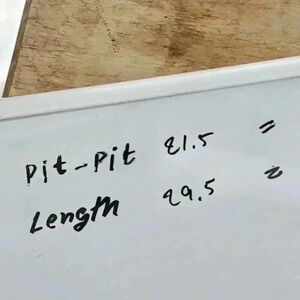 Pit-Pit 21.5 =
Length 29.5 =